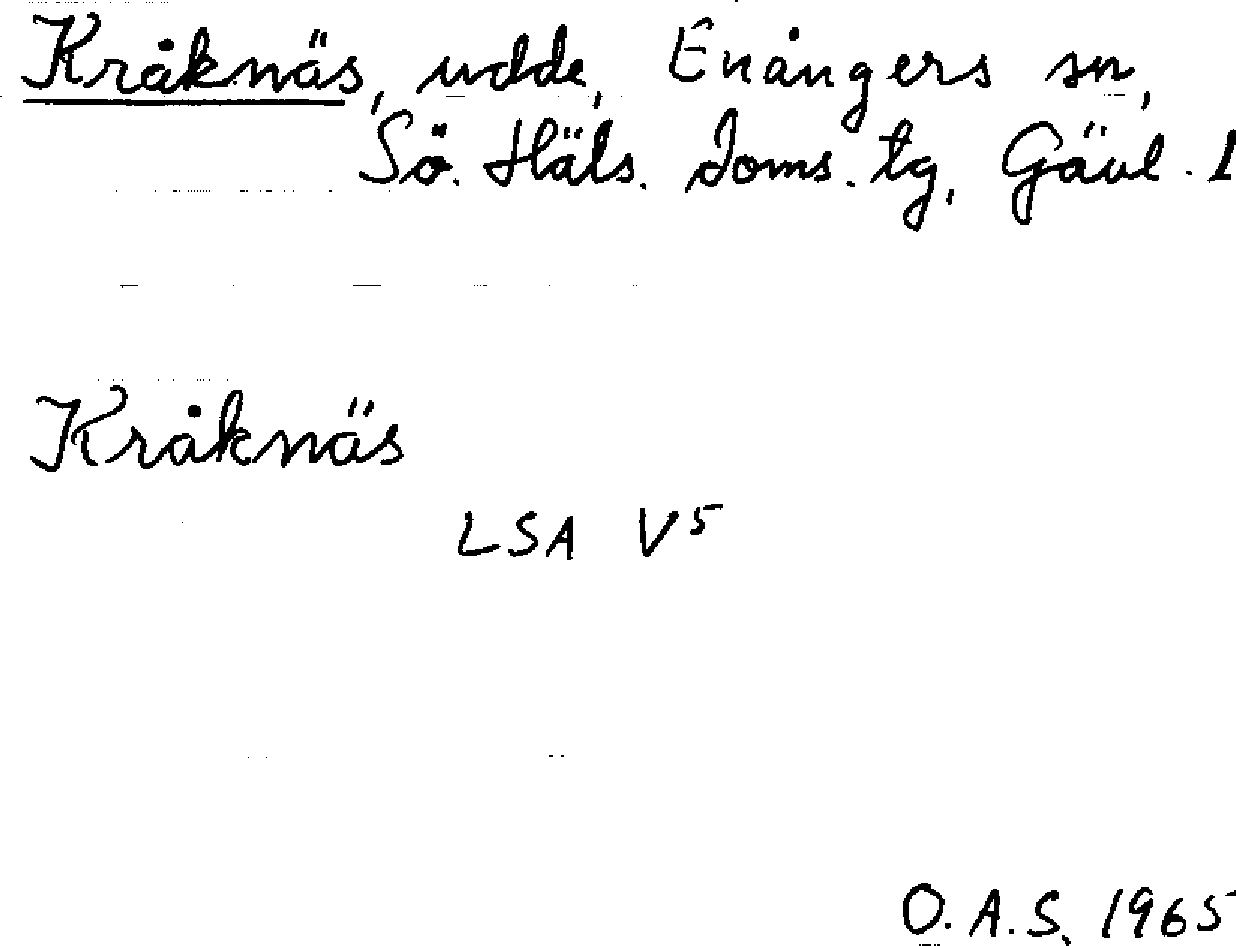 Kråknäs, udde, Enångers sn,
Sö. Häls. doms. tg, Gävl. l
Kråknäs
LSA V5
O.A.S. 1965